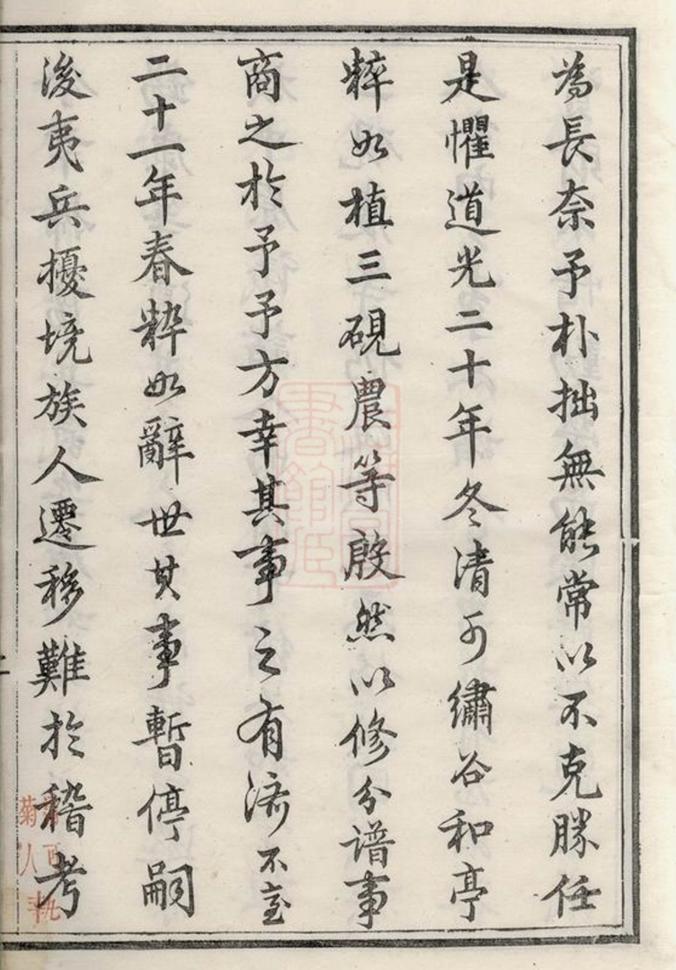 為長奈予朴拙無能常以不克勝任
是懼道光二十年冬清可繡谷和亭
粹如植三硯農等殷然以修分譜事
商之於予予方幸其事之有濟不意
二十一年春粹如辭世其事暫停嗣
後夷兵擾境族人遷移難於稽考